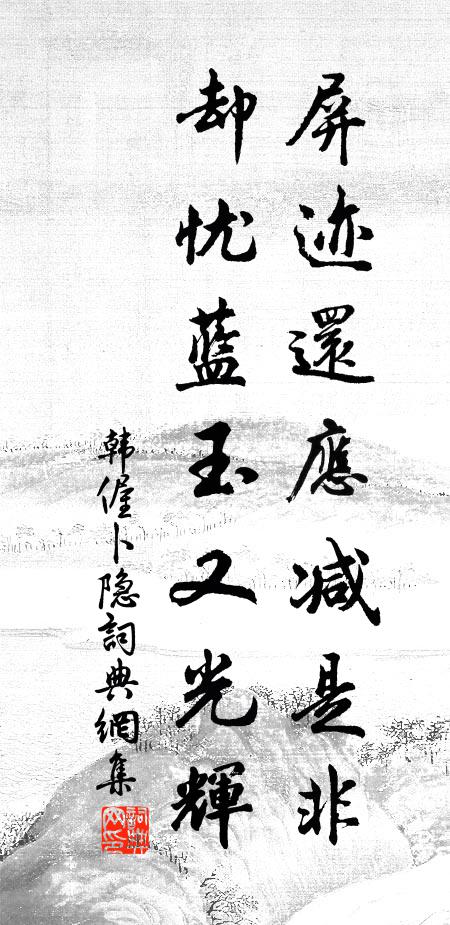 屏迹還應減是非
却忧藍玉又光輝
韩偓卜隐詞典網集